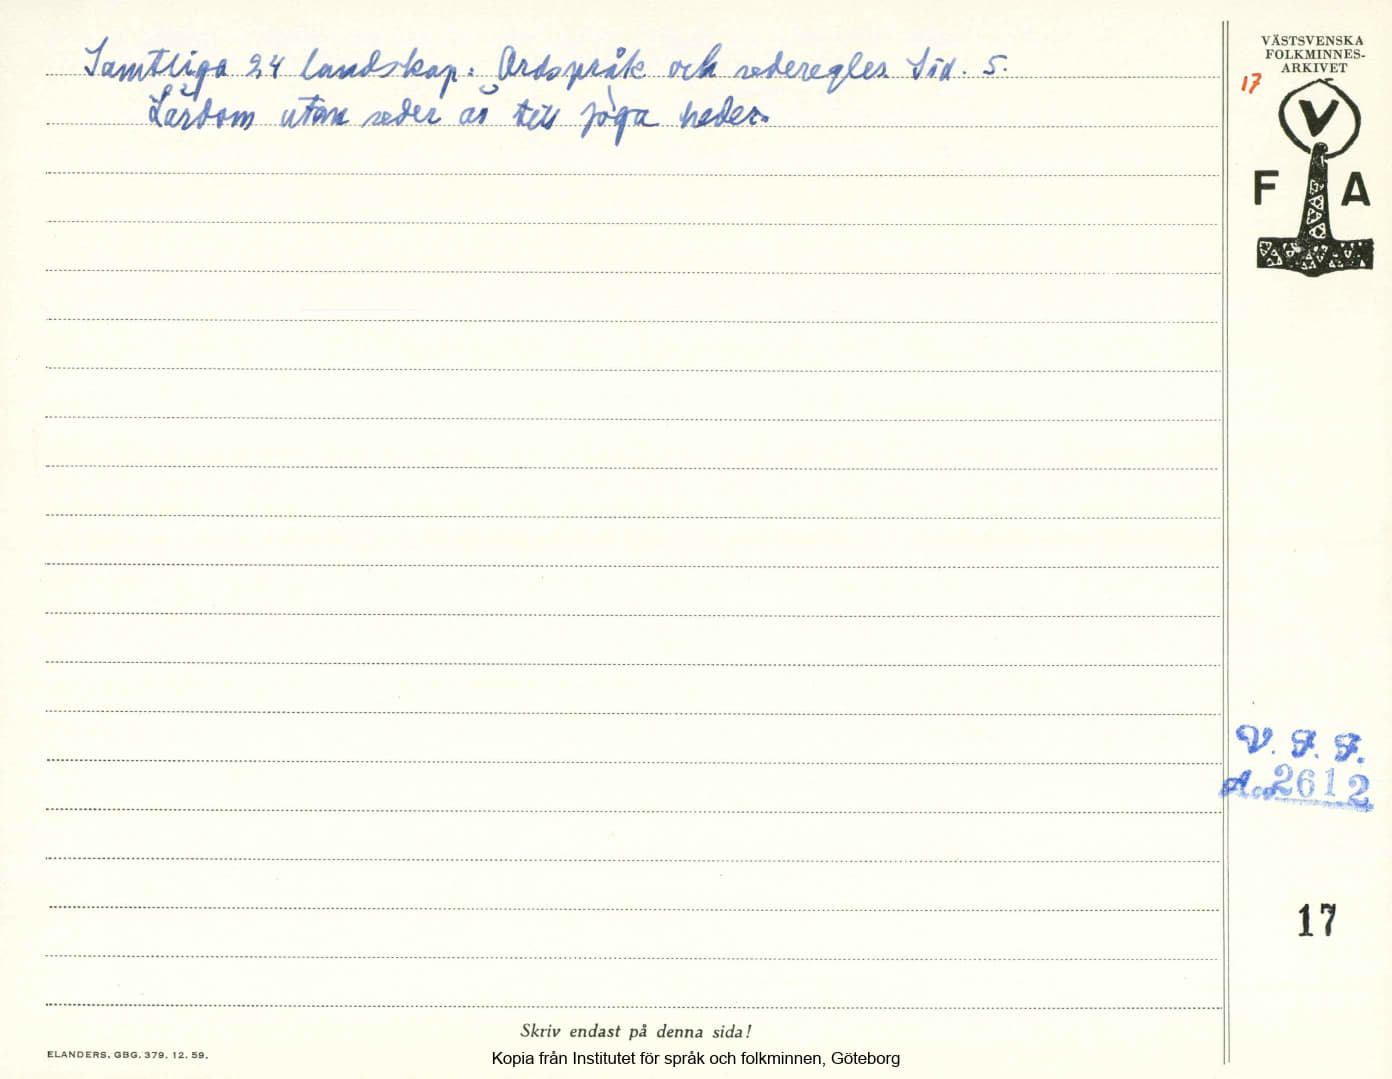 Samtliga 24 landskap: Ordspråk och sederegler. Sid. 5.
Lärdom utan seder är till föga heder.
VÄSTSVENSKA
FOLKMINNES-
ARKIVET
17
V
F A
V. F. F.
Acc 2612
17
Skriv endast på denna sida!
ELANDERS, GBG. 379. 12. 59.
Kopia från Institutet för språk och folkminnen, Göteborg